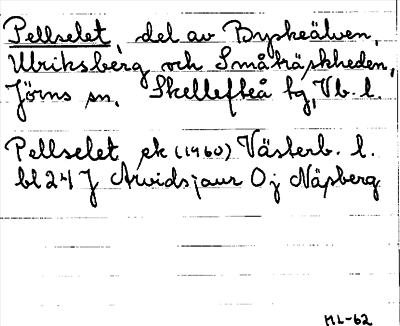 Pellselet, del av Byskeälven,
Ulriksberg och Småträskheden,
Jörns sn. Skellefteå tg, Vb. l.
Pellselet, ek (1960) Västerb. l.
bl 24 J Arvidsjaur Oj Näpberg
ML-62